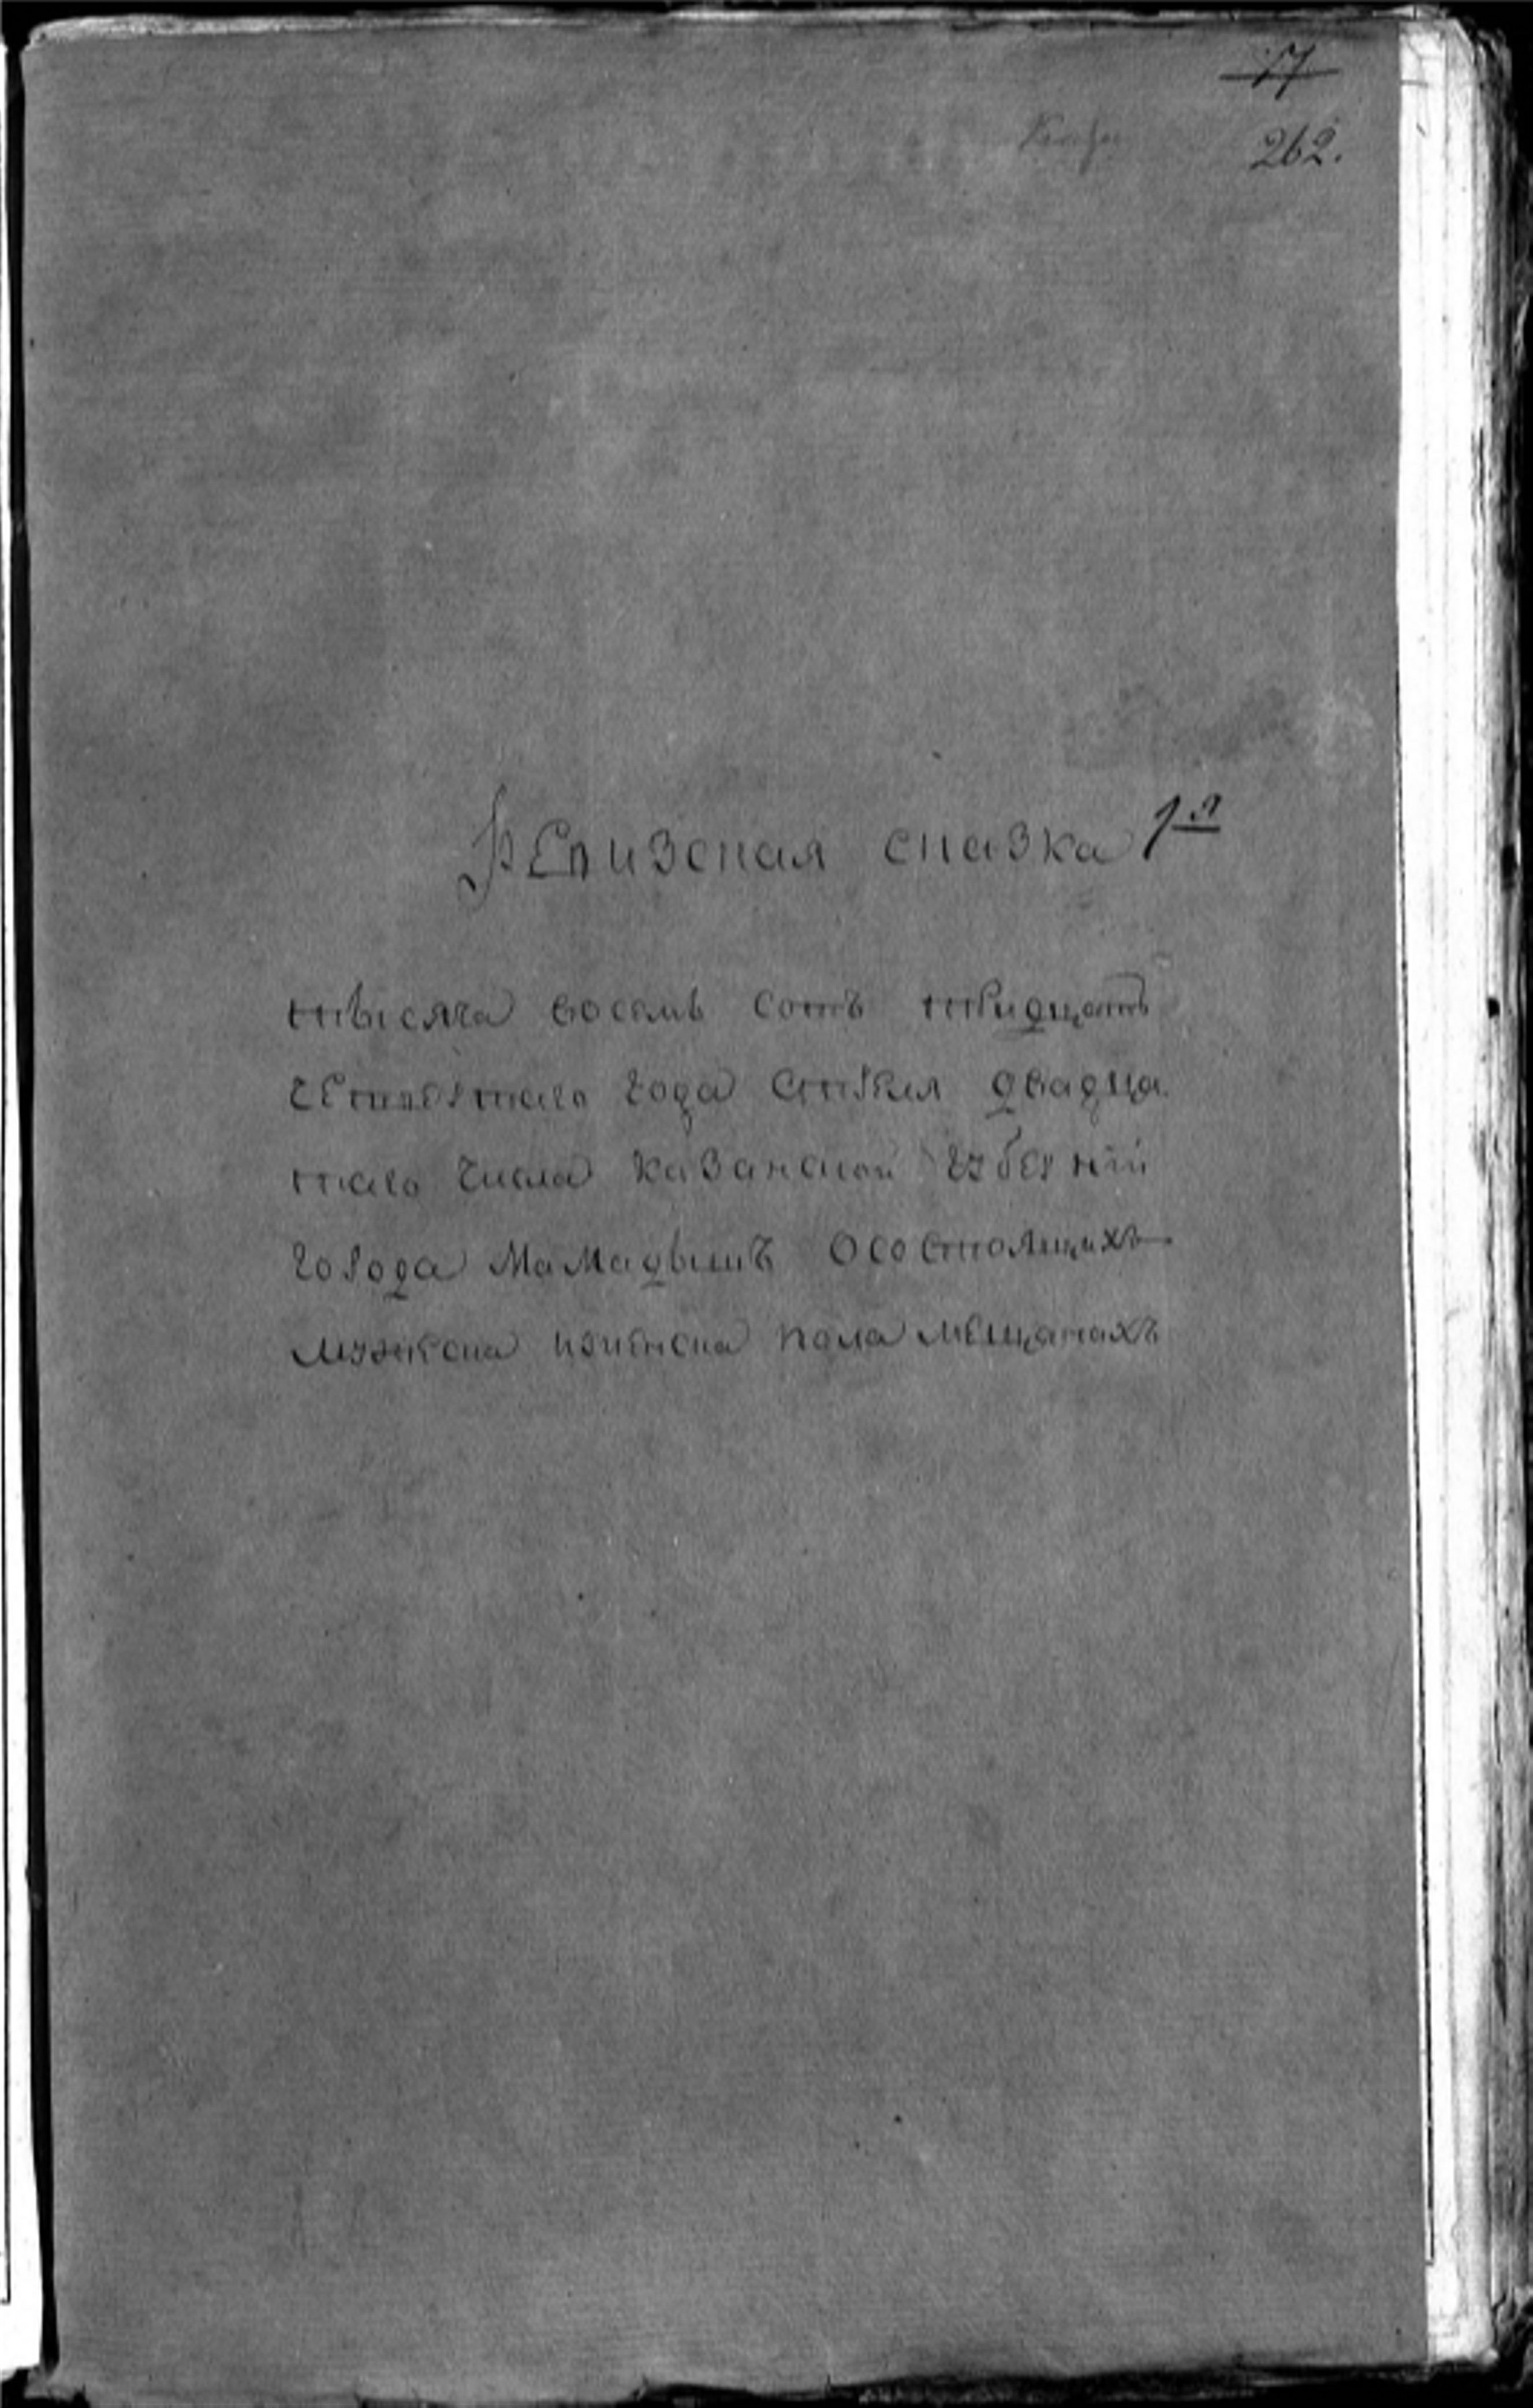 17
262.
Ревизская сказка 1я
тысяча восемь сотъ тридцать
четвертаго года апреля двадца
таго числа казанской губернiи
города Мамадышъ осостоящихъ
мужеска иженска пола мещанахъ